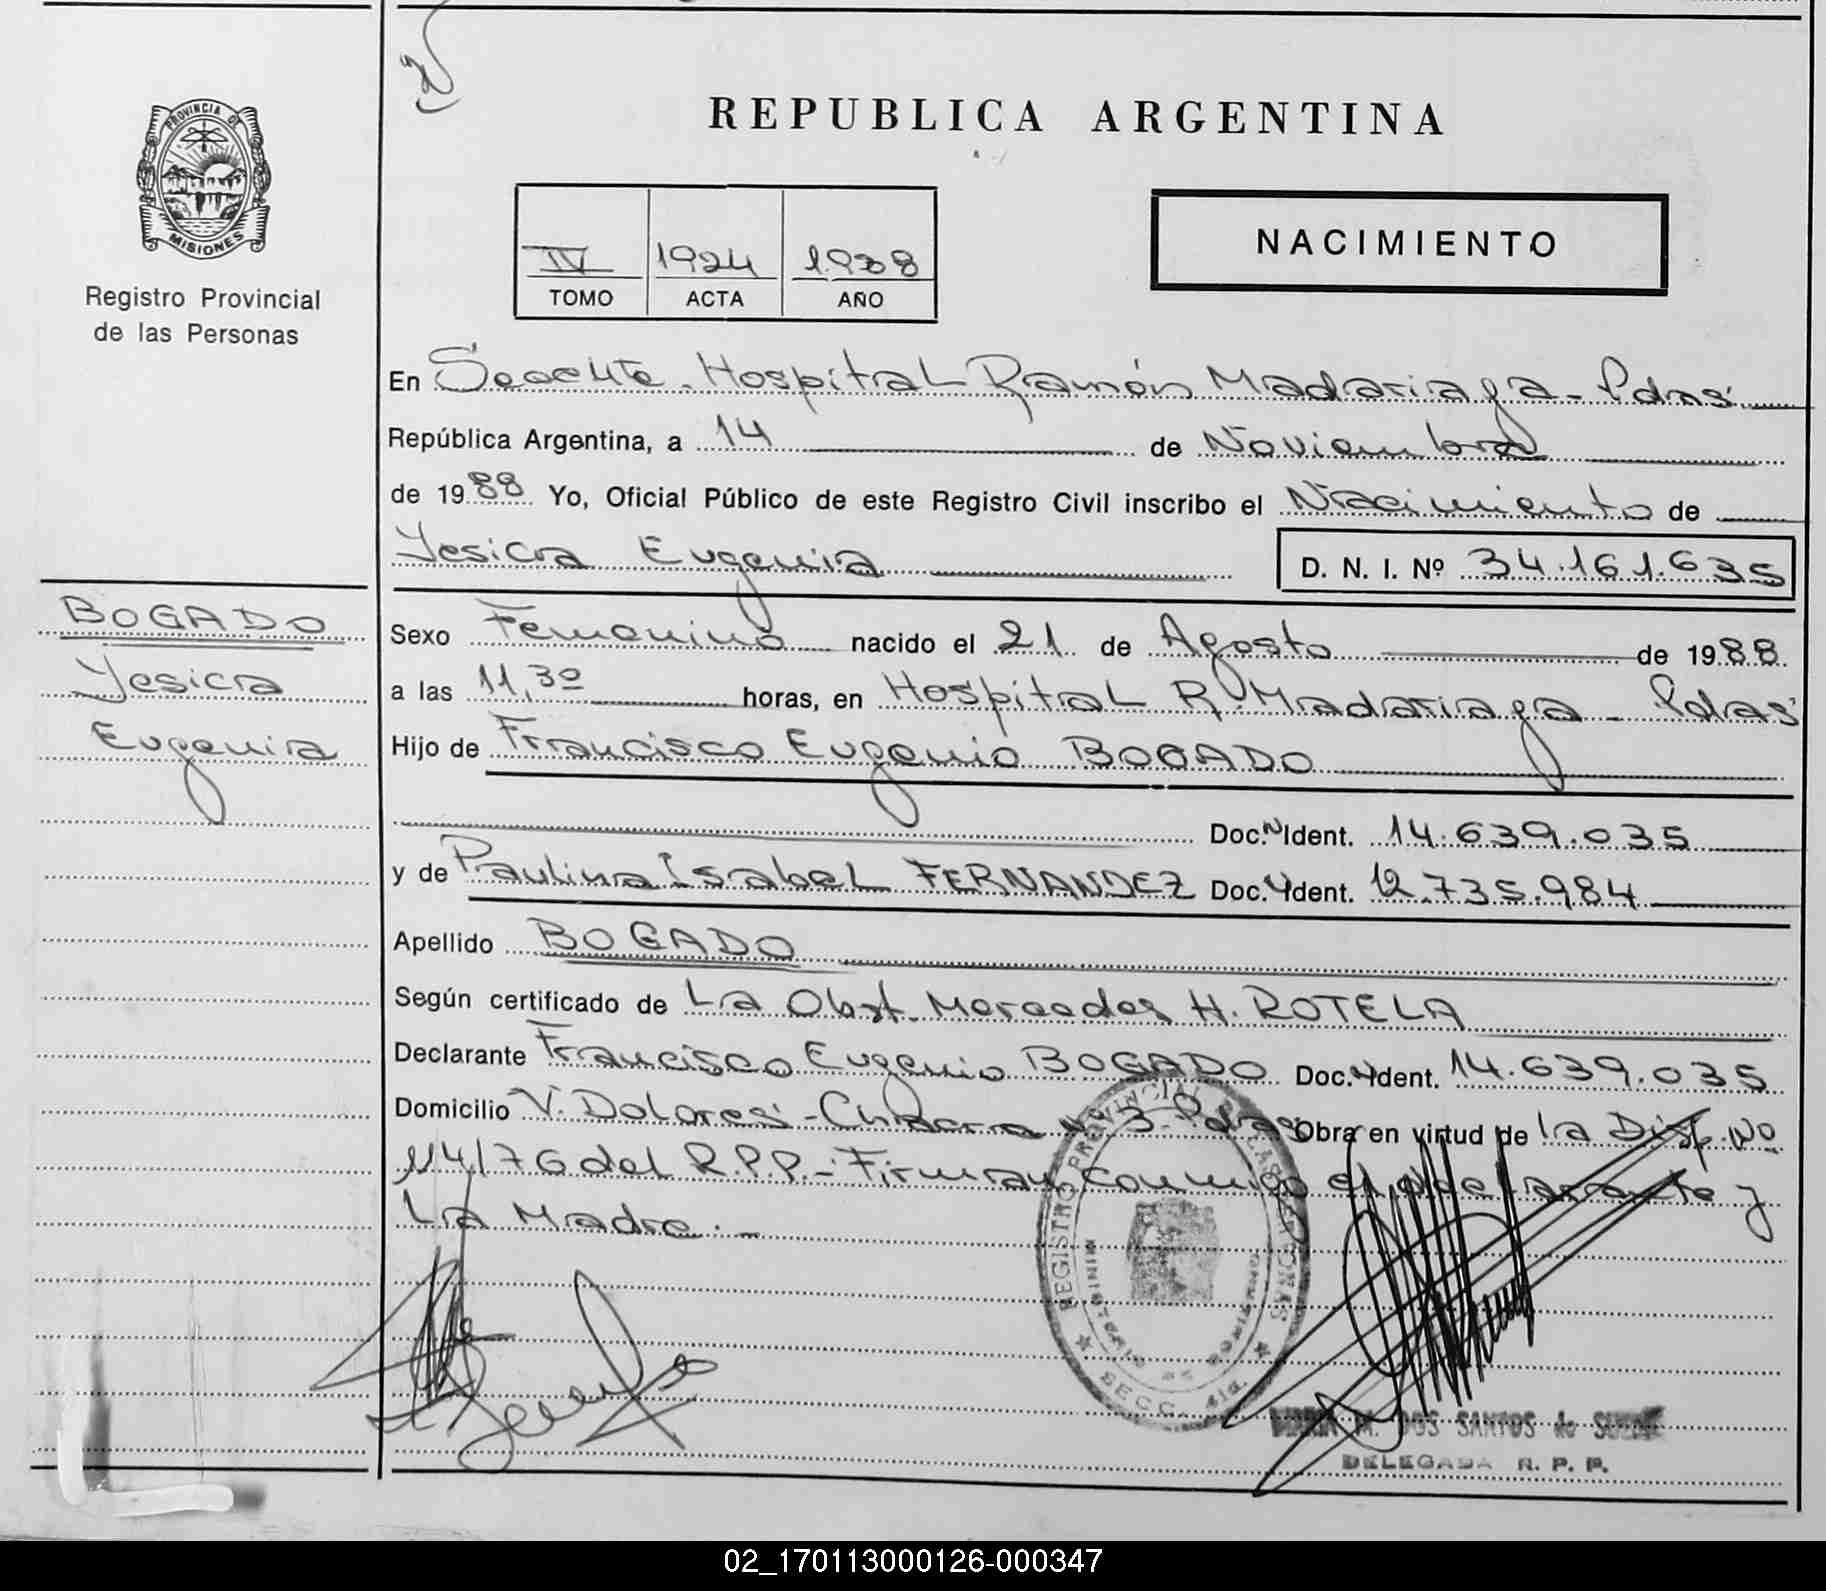 PROVINCIA DE
MISIONES
Registro Provincial
de las Personas
REPUBLICA ARGENTINA
IV 1924 1988
TOMO ACTA AÑO
NACIMIENTO
En Hospital Ramón Madariaga - Pdas
República Argentina, a 14 de Noviembre
de 1988 Yo, Oficial Público de este Registro Civil inscribo el Nacimiento de
Yesica Eugenia D. N. I. Nº 34.161.635
BOGADO
Yesica
Eugenia
Sexo Femenino nacido el 21 de Agosto de 1988
a las 11,30 horas, en Hospital R. Madariaga - Pdas
Hijo de Francisco Eugenio BOGADO
Doc. N Ident. 14.639.035
y de Paulina Isabel FERNANDEZ Doc. Ident. 12.735.984
Apellido BOGADO
Según certificado de La Obst. Mercedes H. ROTELA
Declarante Francisco Eugenio BOGADO Doc. Ident. 14.639.035
Domicilio V. Dolores - Chacra Nº 3 - Pdas Obra en virtud de la Disp. Nº
114/76 del R.P.P.- Firman conmigo el declarante y
La Madre.-
REGISTRO PROVINCIAL DE LAS PERSONAS
MINISTERIO DE GOBIERNO
SECC. 4ta.
MARIA M. DOS SANTOS de
DELEGADA R. P. P.
02_170113000126-000347